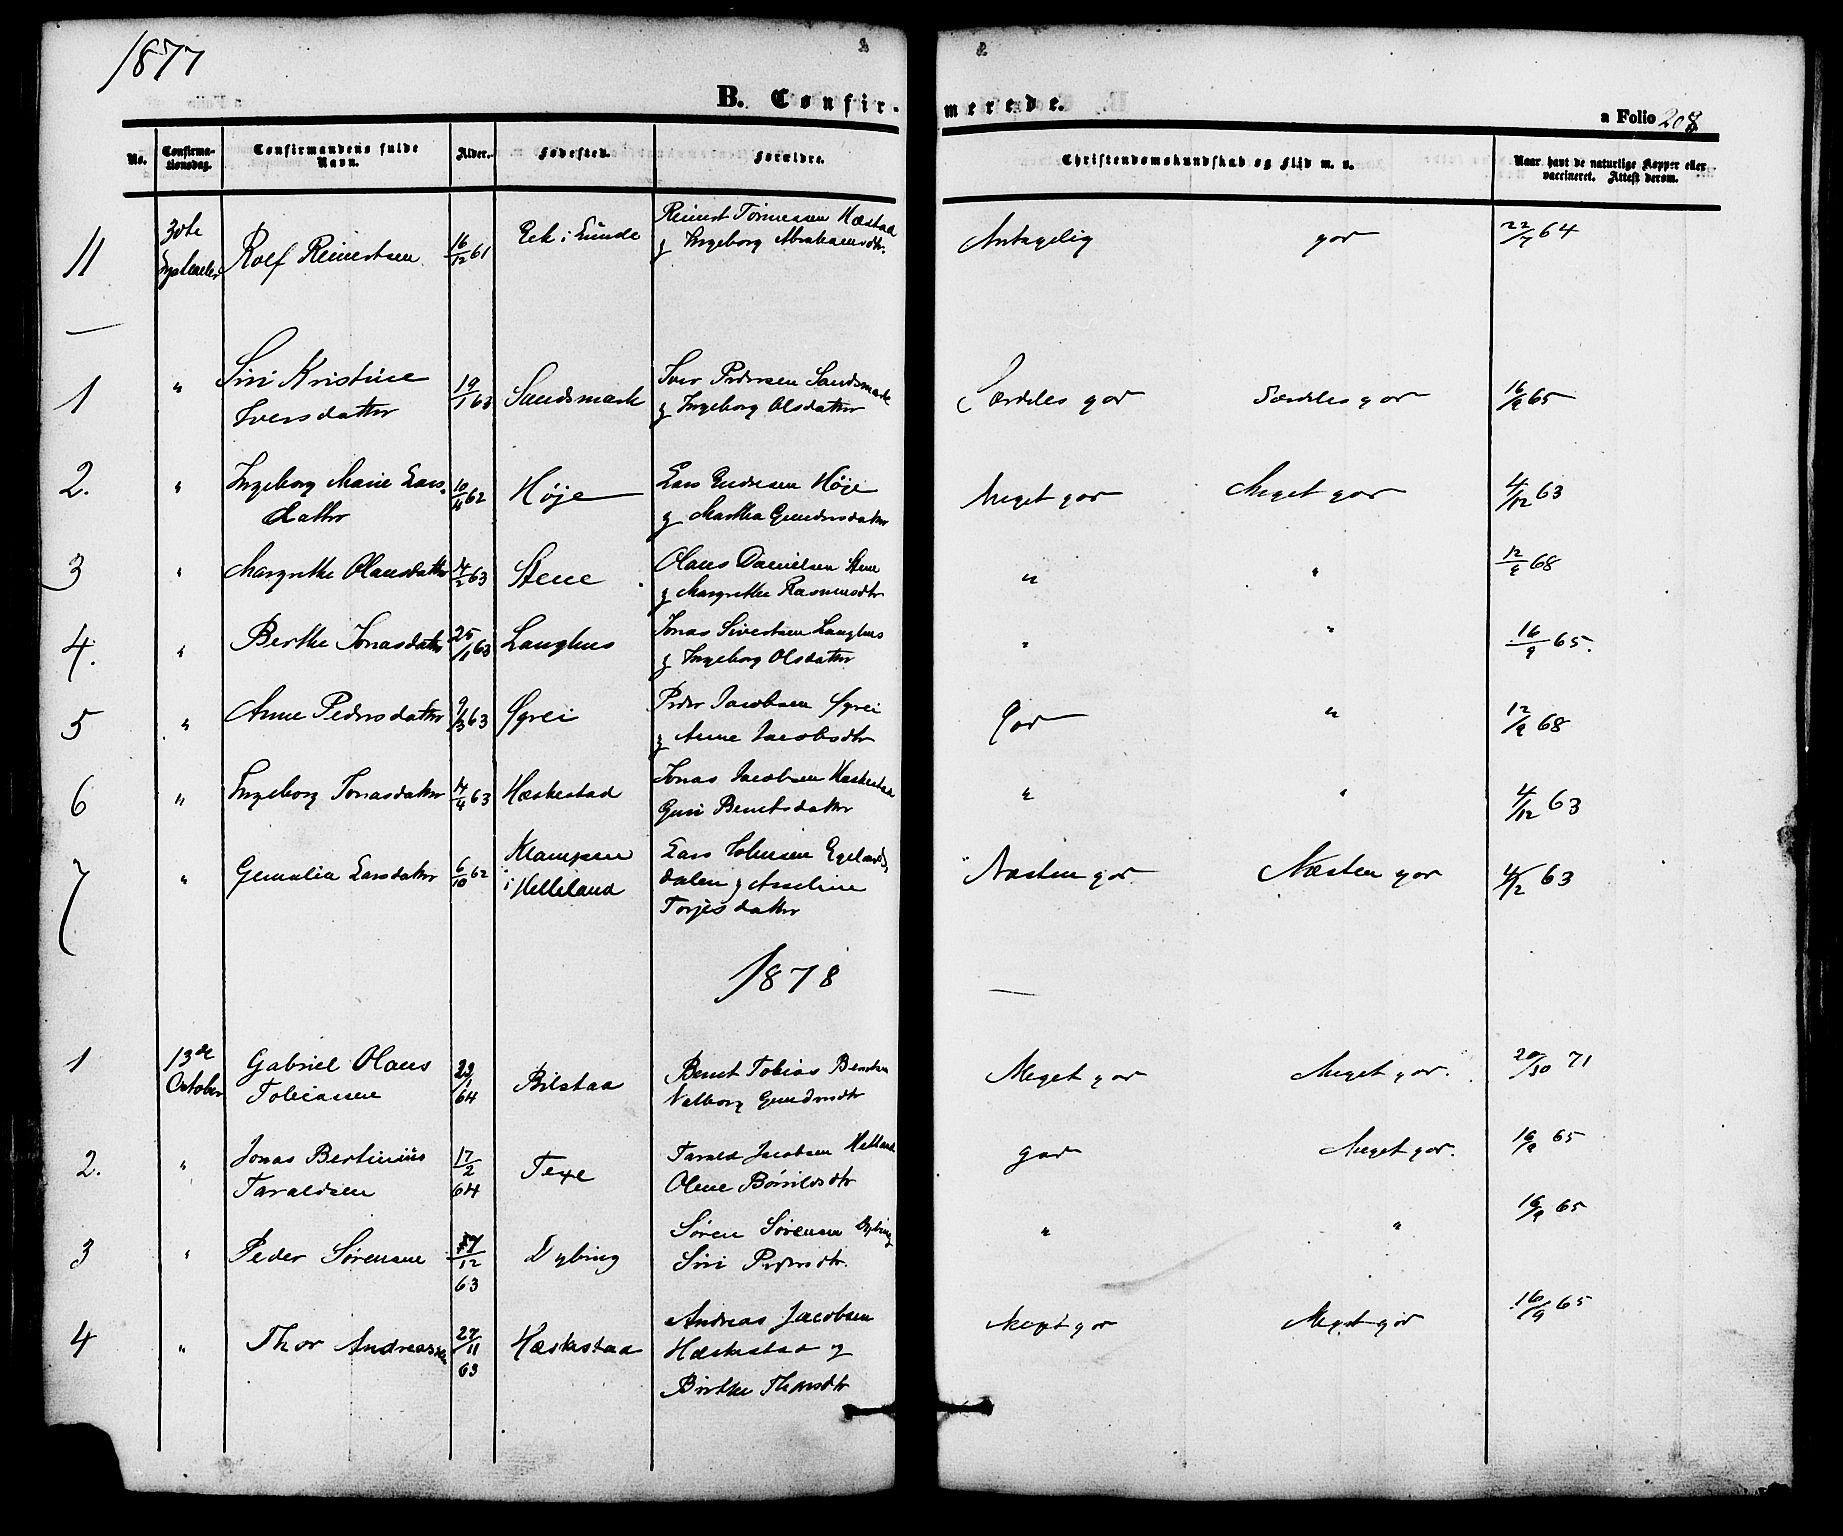 1877
B. Confir-
merede.
a Folio 208
No.
Confirma-
tionsdag.
Confirmandens fulde
Navn.
Alder.
Fødested.
Forældre.
Christendomskundskab og Flid m. v.
Naar havt de naturlige Kopper eller
vaccineret. Attest derom.
11 30te September Rolf Reinertsen 16/12 61 Eek i Lunde
Reinert Tørnessen Hæstad
g Ingeborg Abrahamsdtr.
Antagelig god 22/7 64
1 " Siri Kristine
Iversdatter
19/1 63 Sandsmark
Iver Pedersen Sandsmark
g Ingeborg Olsdatter
Særdeles god Særdeles god 16/9 65
2. " Ingeborg Marie Lars-
datter
10/4 62 Høje
Lars Endresen Høje
g Martha Gundersdatter
Meget god Meget god 4/12 63
3 " Margrethe Olausdatter 14/2 63 Stene
Olaus Danielsen Stene
g Margrethe Rasmusdtr
" " 12/9 68
4. " Berthe Jonasdatter 25/1 63 Langhus
Jonas Sivertsen Langhus
g Ingeborg Olsdatter
" " 16/9 65.
5 " Anne Pedersdatter 9/3 63 Øgrei
Peder Jacobsen Øgrei
g Anne Jacobsdtr
God " 12/9 68
6 " Ingeborg Jonasdatter 14/4 63 Hæskestad
Jonas Jacobsen Hæskestad
Guri Bentsdatter
" " 4/12 63
7 " Gemalia Larsdatter 6/10 62 Klampen
i Helleland
Lars Tobiasen Egelands
dalen g Asseline
Torjesdatter
Næsten god. Næsten god 4/12 63
1878
1 13de October Gabriel Olaus
Tobiassen
23/1 64 Bilstad
Bernt Tobias Bentsen
Valborg Gundersdtr
Meget god Meget god. 20/10 71
2. " Jonas Bertinius
Taraldsen
17/2 64 Texe
Tarald Jacobsen Helland
Olene Børrildsdtr
god Meget god. 16/9 65
3 " Peder Sørensen 17/12 63 Dybing
Søren Sørensen Dybing
Siri Pedersdtr.
" " 16/9 65
4 " Thor Andreassen 27/11 63 Hæskestad
Andreas Jacobsen
Hæskestad og
Berthe Thorsdtr
Meget god Meget god 16/9 65